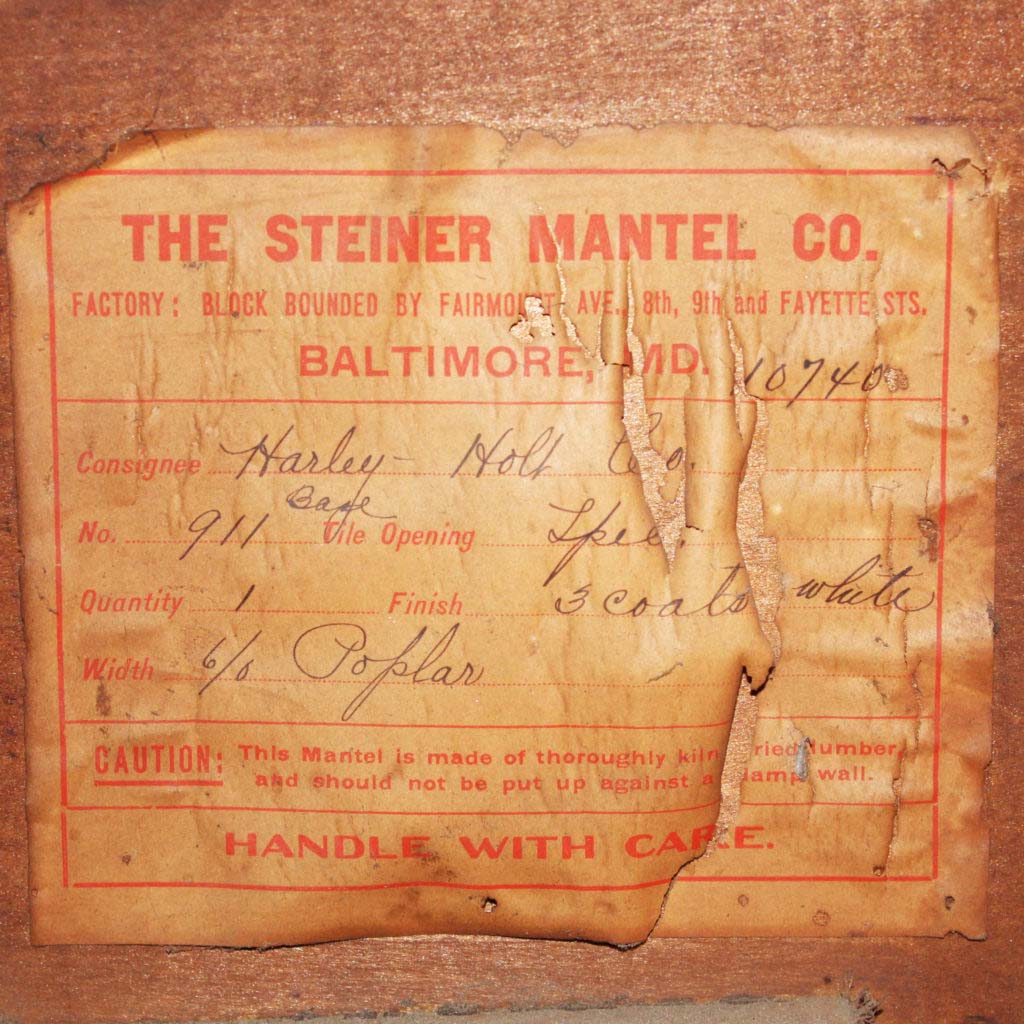 THE STEINER MANTEL CO.
FACTORY: BLOCK BOUNDED BY FAIRMOUNT AVE. 8th, 9th and FAYETTE STS.
BALTIMORE, MD. 10740
Consignee Harley-Holt Co.
Base
No. 911 Tile Opening Spec.
Quantity 1 Finish 3 coats white
Width 6/0 Poplar
CAUTION: This Mantel is made of thoroughly kiln dried lumber,
and should not be put up against a damp wall.
HANDLE WITH CARE.